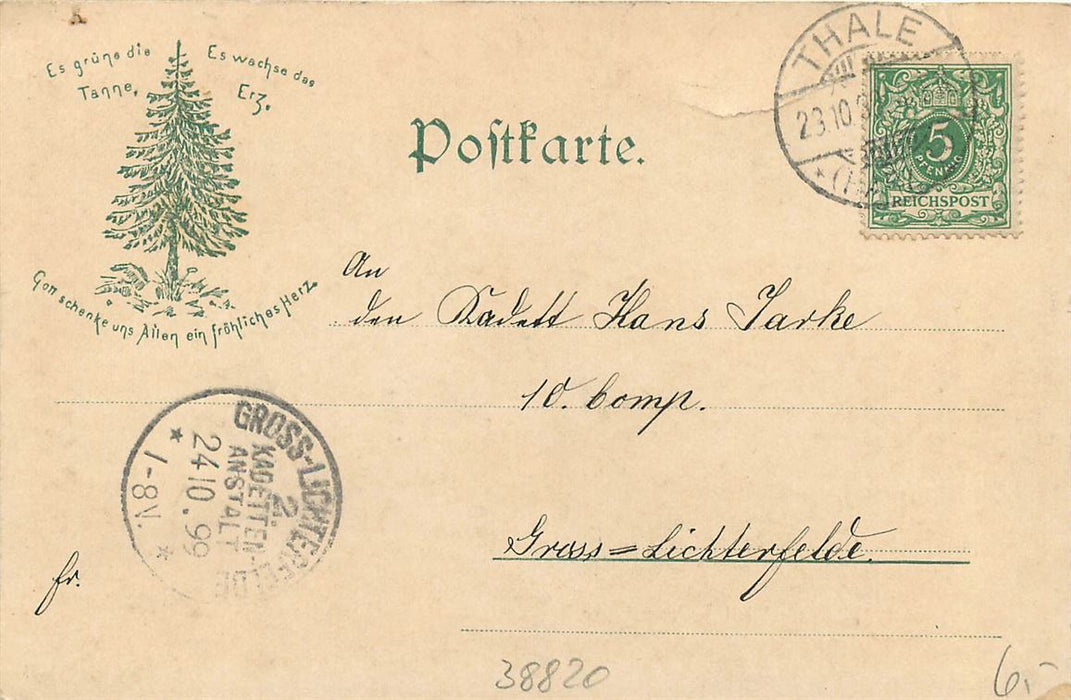 Es grüne die
Tanne,
Es wachse das
Erz.
Gott schenke uns Allen ein fröhliches Herz.
Postkarte.
THALE
23.10
5
PFENNIG
REICHSPOST
An
den Kadett Hans Jarke
10. Comp.
Gross=Lichterfelde.
GROSS-LICHTERFELDE
2
KADETTEN
ANSTALT
24 10. 99
* 1-8 N. *
fr.
38820
6,-